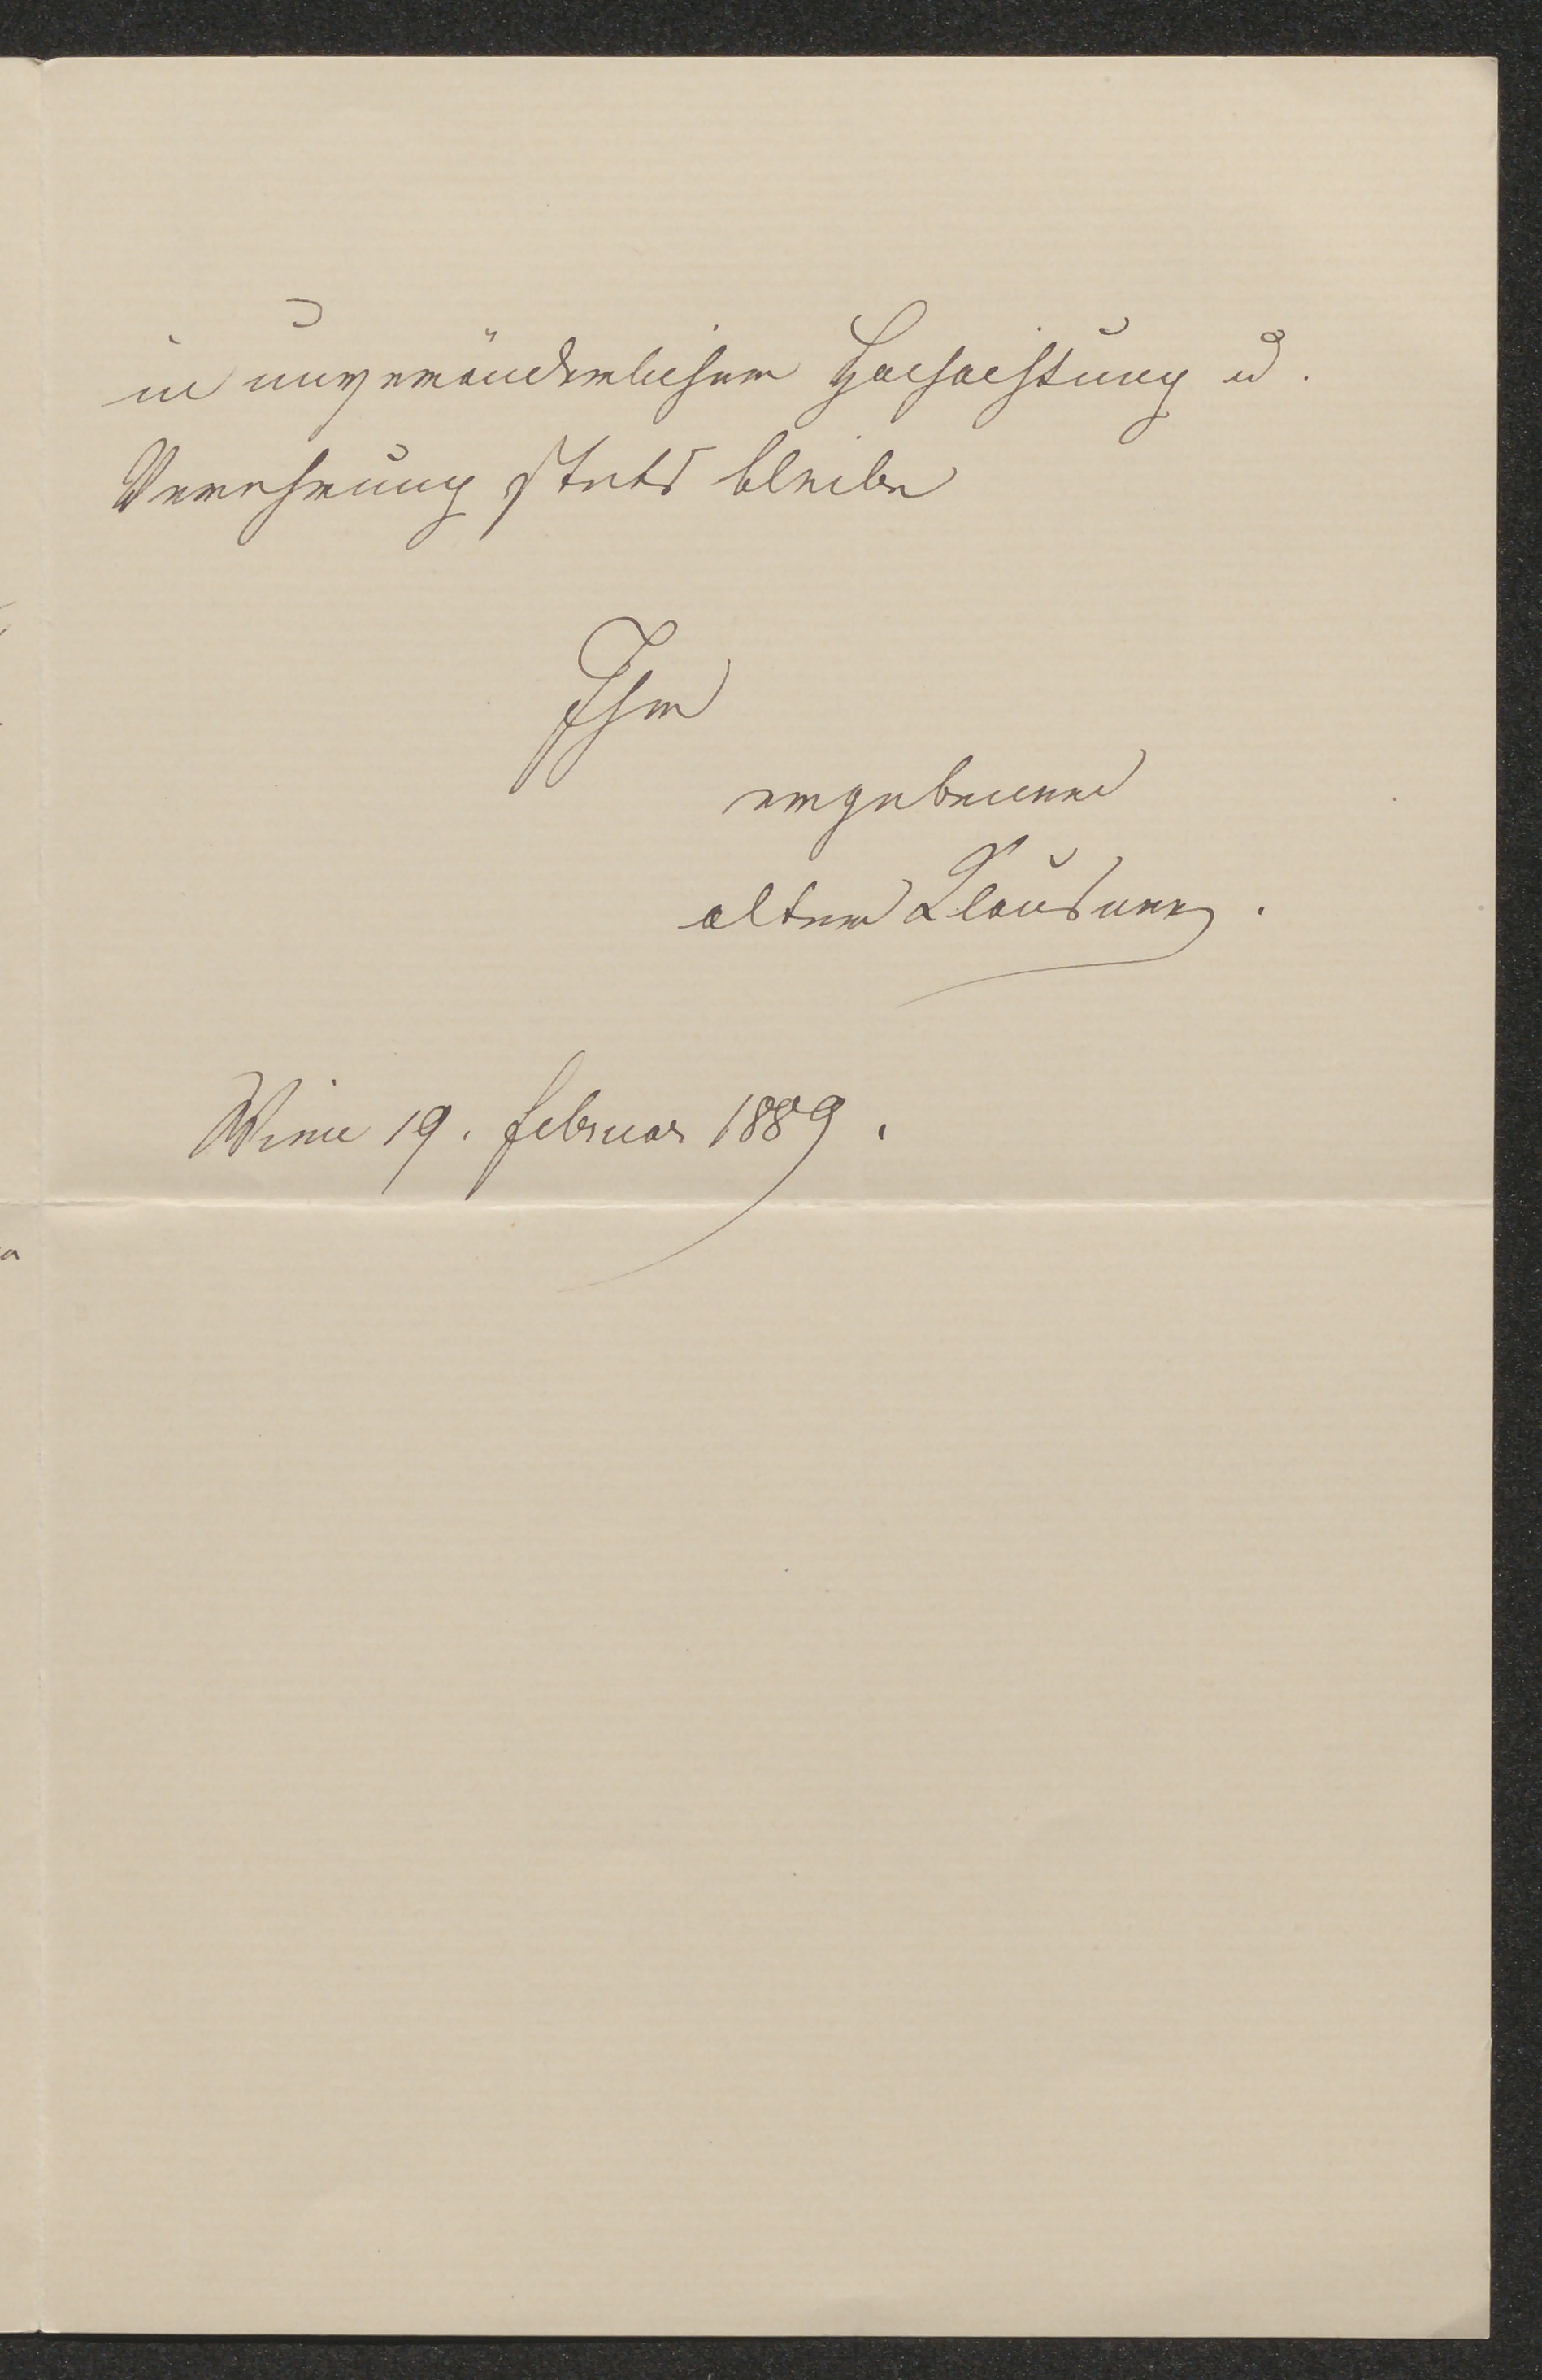 in unveränderlicher Hochachtung u.
Verehrung stets bleibe
Ihr
ergebener
alter Klausner.
Wien 19. Februar 1889.